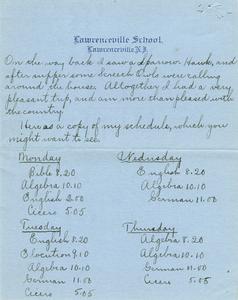 Lawrenceville School,
Lawrenceville N.J.
On the way back I saw a Sparrow Hawk, and
after supper some Screech Owls were calling
around the houses. Altogether I had a very
pleasant trip, and am more than pleased with
the country.
Here is a copy of my schedule, which you
might want to see.
Monday
Bible 8.20
Algebra 10.10
English 2.00
Cicero 5.05
Tuesday
English 8.20
Elocution 9.10
Algebra 10.10
German 11.00
Cicero 5.05
Wednesday
English 8.20
Algebra 10.10
German 11.00
Thursday
Algebra 8.20
English 10.10
German 11.00
Cicero 5.05